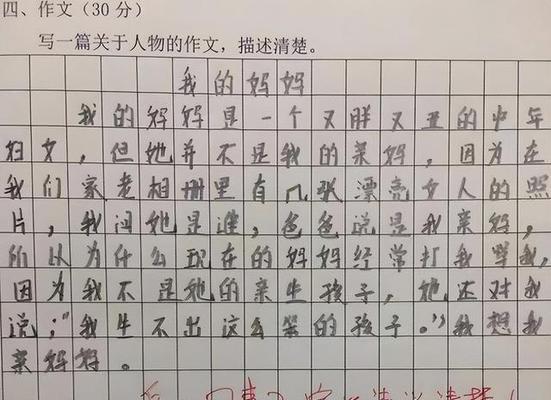 四、作文(30分)
写一篇关于人物的作文，描述清楚。
我的妈妈
我的妈妈是一个又胖又丑的中年
妇女，但她并不是我的亲妈，因为在
我们家老相册里有几张漂亮女人的照
片，我问她是谁，爸爸说是我亲妈，
所以为什么现在的妈妈经常打我骂我，
因为我不是她的亲生孩子，她还对我
说："我生不出这么笨的孩子。"我想我
亲妈妈。